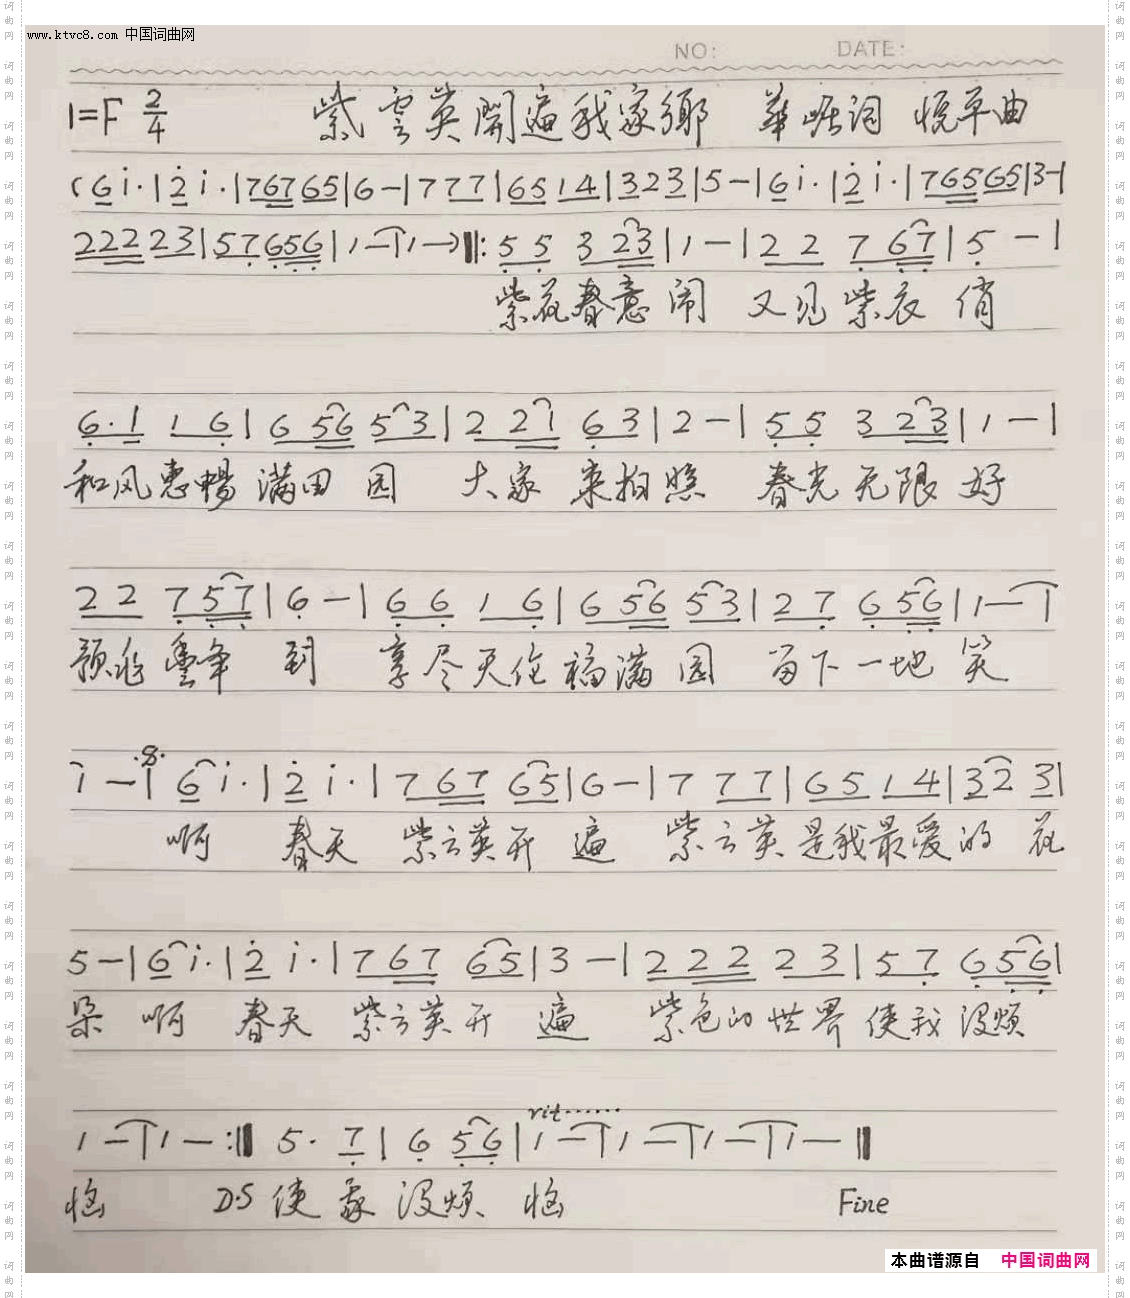 www.ktvc8.com 中国词曲网
NO: DATE:
1=F 2/4 紫雲英開遍我家鄉 華崌词 悦平曲
(6 i·|2 i·|7 67 65|6-|7 77|65 14|323|5-|6 i·|2 i·|7 65 65|3-|
222 23|57 656|1-1 1-)‖: 5 5 3 23|1-|2 2 7 67|5-|
紫花春意闹 又见紫衣俏
6·1 1 6|6 56 53|2 21 6 3|2-|5 5 3 23|1-|
和风惠暢满田园 大家来拍照 春光无限好
22 7 57|6-|6 6 1 6|6 56 53|27 6 56|1-1
预兆豐年到 享尽天伦福满园 留下一地笑
1-|𝄋 6 i·|2 i·|7 67 65|6-|7 77|65 14|32 3|
啊 春天 紫云英开遍 紫云英是我最爱的花
5-|6 i·|2 i·|7 67 65|3-|222 23|57 656|
朵 啊 春天 紫云英开遍 紫色的世界使我没烦
rit······
1-1 1-:‖ 5· 7|6 56|1-1 1-1 1-1 1-‖
恼 D.S 使 没烦恼 Fine
本曲谱源自 中国词曲网
词曲网